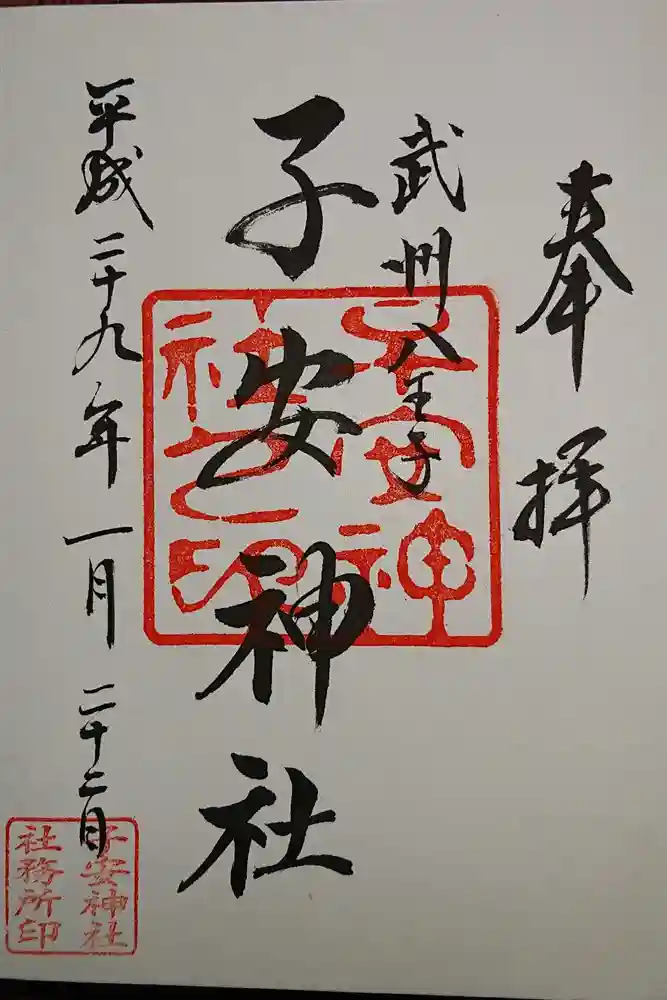 奉拝
武州八王子
子安神社
子安神
社之印
平成二十九年一月二十二日
子安神社
社務所印